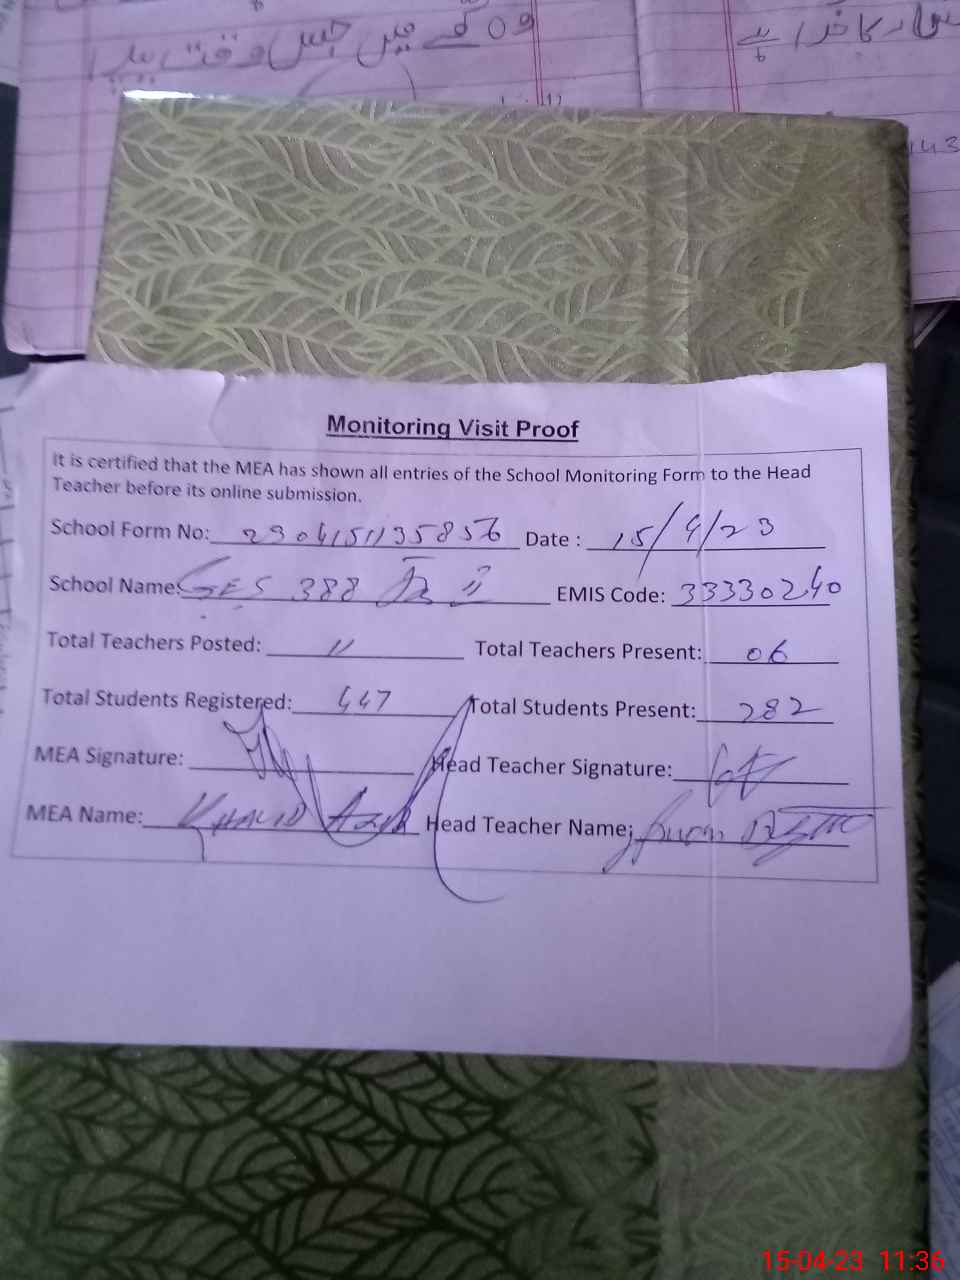 143
Monitoring Visit Proof
It is certified that the MEA has shown all entries of the School Monitoring Form to the Head
Teacher before its online submission.
School Form No: 2304151135856 Date : 15/4/23
School Name: GES 388 JB II EMIS Code: 33330240
Total Teachers Posted: 11 Total Teachers Present: 06
Total Students Registered: 447 Total Students Present: 282
MEA Signature: Head Teacher Signature:
MEA Name: KHALID Head Teacher Name:
15-04-23 11:36